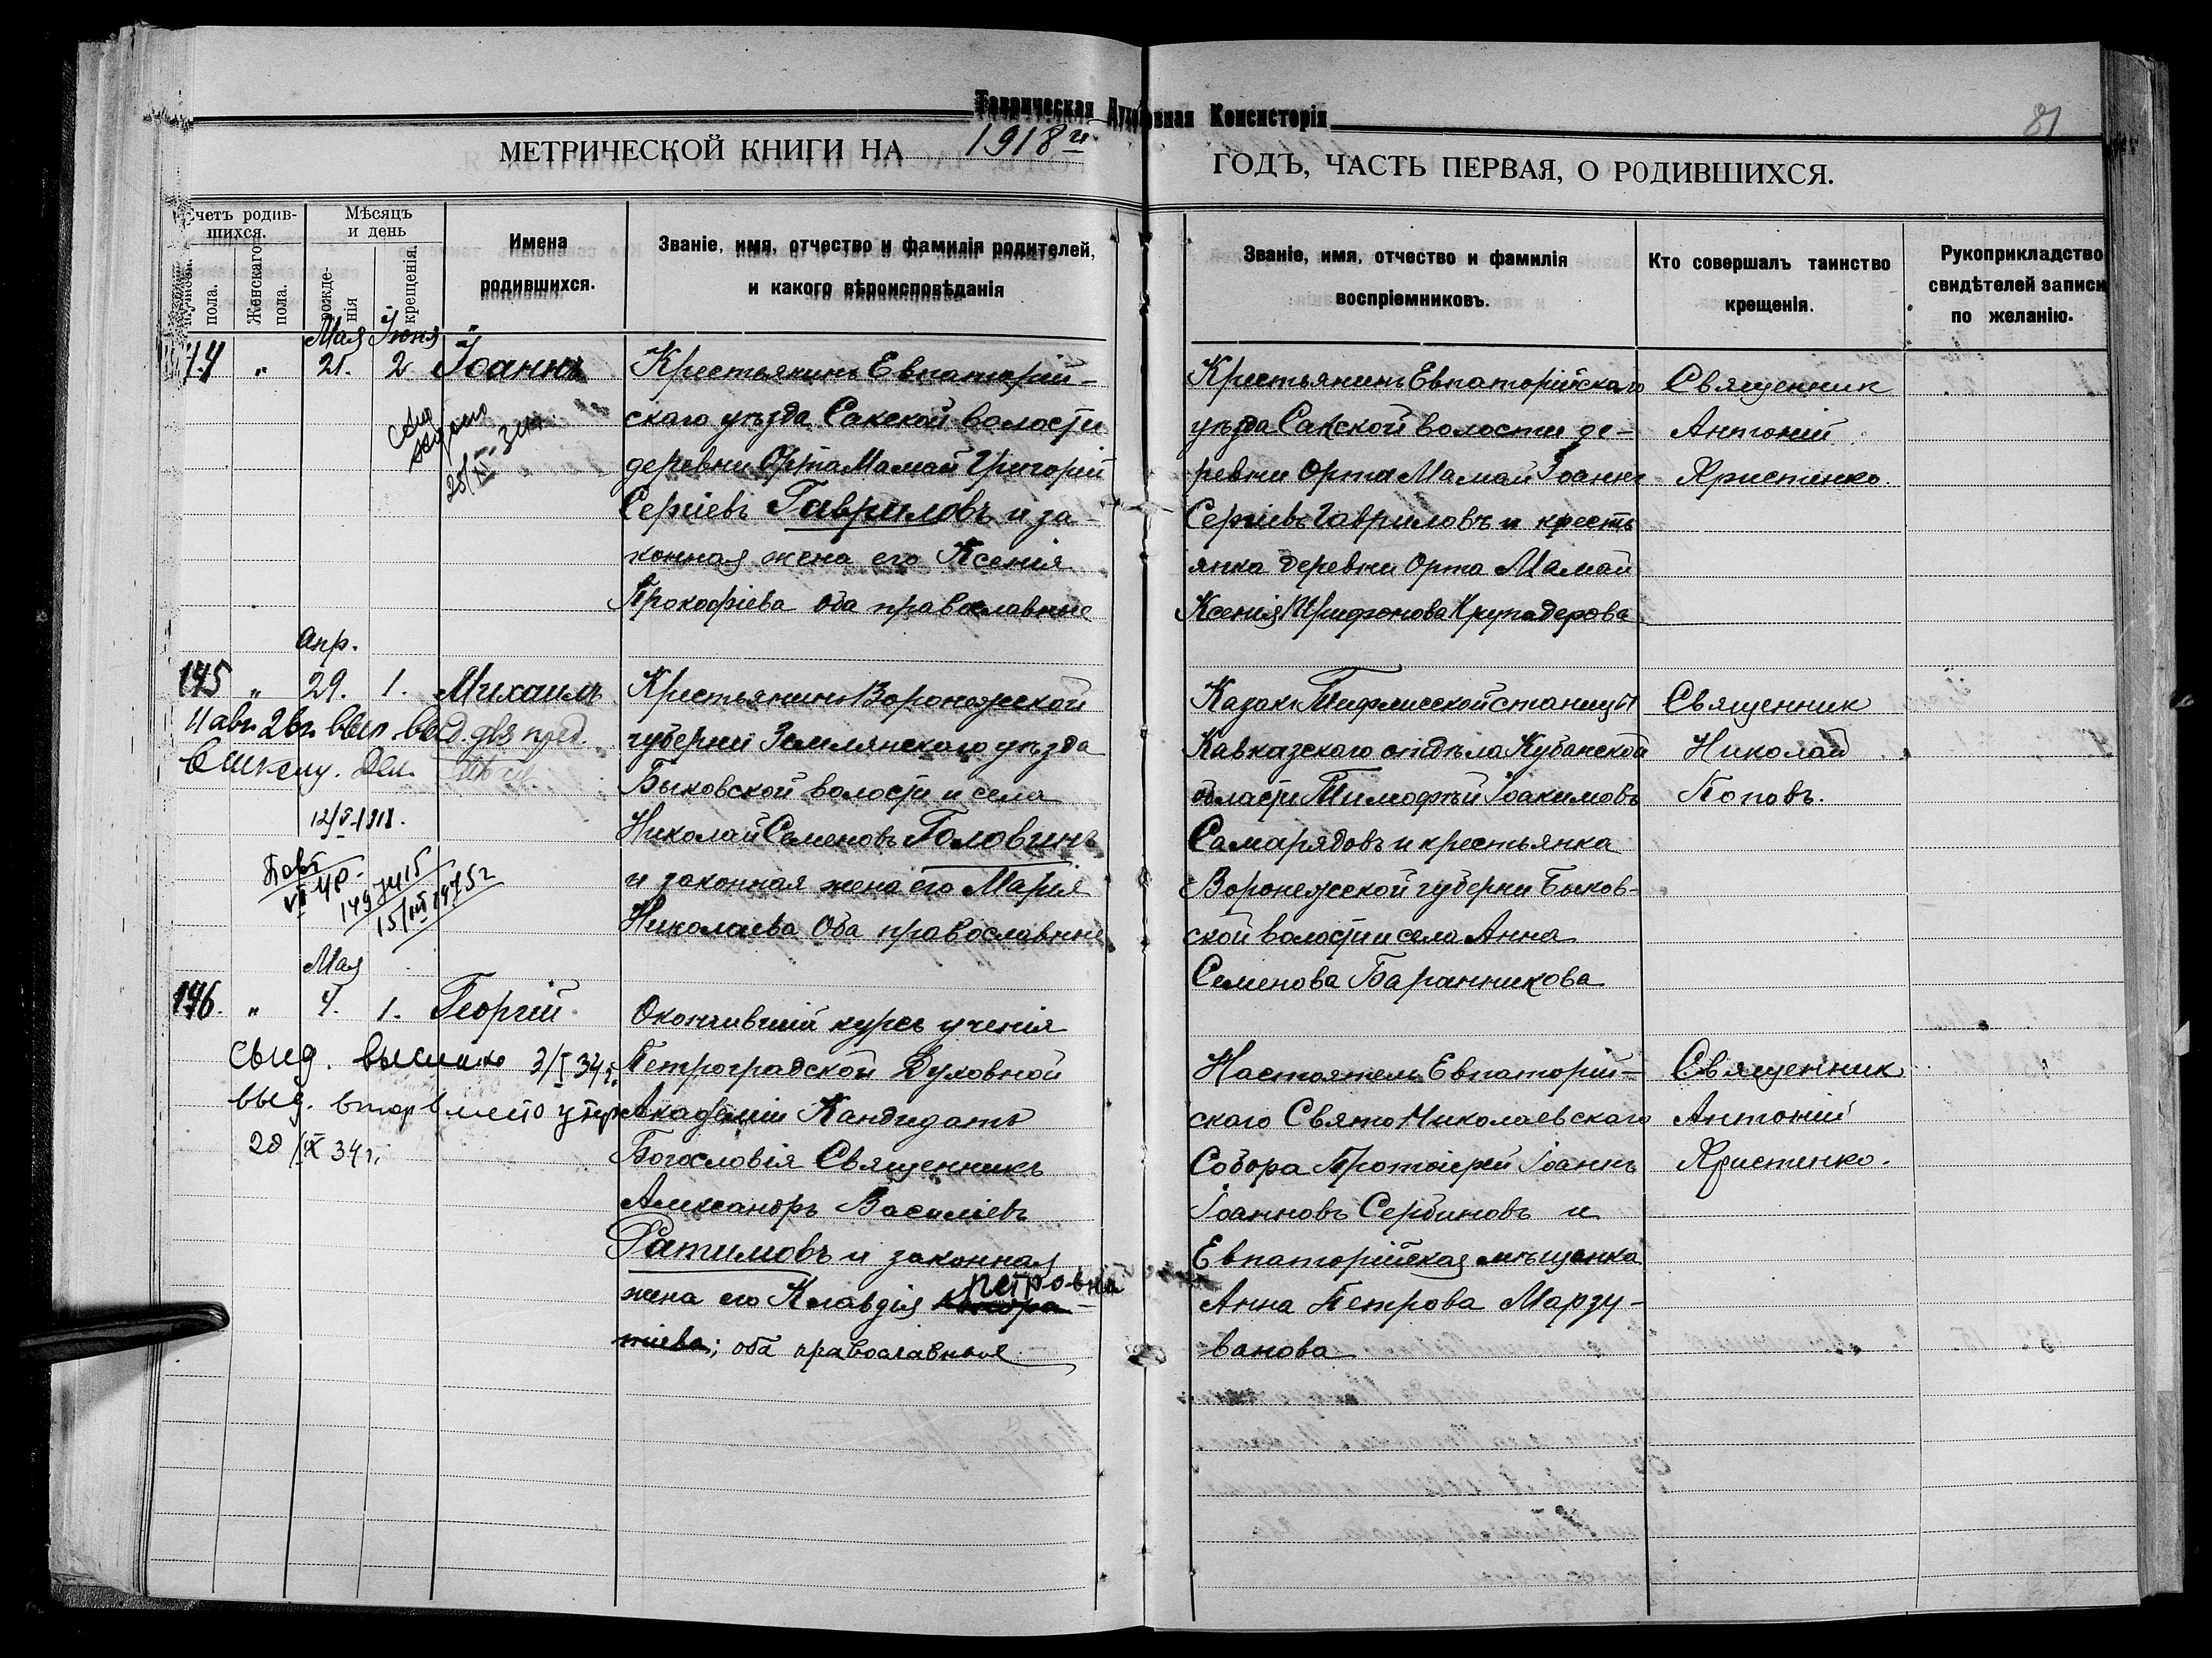 Таврическая Духовная Консисторія
81
МЕТРИЧЕСКОЙ КНИГИ НА 1918й
ГОДЪ, ЧАСТЬ ПЕРВАЯ, О РОДИВШИХСЯ.
Счетъ родив-
шихся.
пола.
Женскаго
пола.
Мѣсяцъ
и день
рожде-
нія
крещенія.
Имена
родившихся.
Званіе, имя, отчество и фамилія родителей,
и какого вѣроисповѣданія
Званіе, имя, отчество и фамилія
воспріемниковъ.
Кто совершалъ таинство
крещенія.
Рукоприкладство
свидѣтелей записи
по желанію.
Мая Іюня
" 21. 2 Іоаннъ
Крестьянинъ Евпаторій-
скаго уѣзда Сакской волости
деревни Орта Мамай Григорій
Сергіевъ Гавриловъ и за-
конная жена его Ксенія
Прокофіева оба православные
Крестьянинъ Евпаторійскаго
уѣзда Сакской волости де-
ревни Орта Мамай Іоаннъ
Сергіевъ Гавриловъ и кресть
янка деревни Орта Мамай
Ксенія Трифонова Крупадерова
Священник
Антоній
Христенко.
Апр.
145 " 29. 1. Михаилъ
12/V-1918.
Крестьянинъ Воронежской
губерніи Землянскаго уѣзда
Быковской волости и села
Николай Семеновъ Головинъ
и законная жена его Марія
Николаева Оба православные
Казакъ Тифлисской станицы
Кавказскаго отдѣла Кубанской
области Тимофѣй Іоакимовъ
Самарядовъ и крестьянка
Воронежской губерніи Быков-
ской волости и села Анна
Семенова Баранникова
Священник
Николай
Поповъ.
Мая
146. " 4. 1. Георгій
выд. 3/I 34г.
выд. втор вместо утер
20/IX 34г.
Окончившій курсъ ученія
Петроградской Духовной
Академіи Кандидатъ
Богословія Священникъ
Александръ Василіевъ
Ратимовъ и законная
жена его Клавдія Петровна
оба православные
Настоятель Евпаторій-
скаго Свято Николаевскаго
Собора Протоіерей Іоаннъ
Іоанновъ Сербиновъ и
Евпаторійская мѣщанка
Анна Петрова Марзу-
ванова
Священник
Антоній
Христенко.